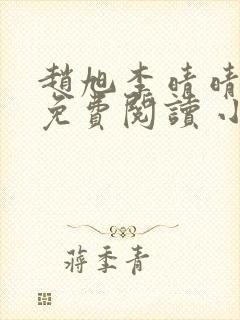 趙旭李晴晴
免費閱讀小
蔣季青